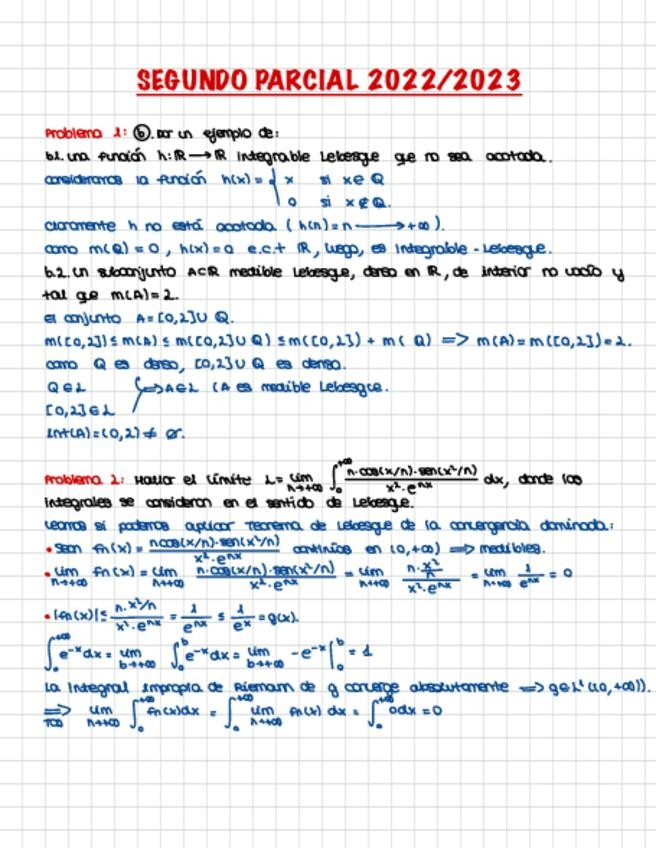 SEGUNDO PARCIAL 2022/2023
Problema 1: ⓑ. Dar un ejemplo de:
b.1. una función h: ℝ → ℝ integrable Lebesgue que no sea acotada.
Consideramos la función h(x) = { x si x ∈ Q
0 si x ∉ Q.
Claramente h no está acotada (h(n) = n → +∞).
Como m(Q) = 0, h(x) = 0 e.c.t ℝ, luego, es integrable-Lebesgue.
b.2. Un subconjunto A⊂ℝ medible Lebesgue, denso en ℝ, de interior no vacío y
tal que m(A) = 2.
El conjunto A = [0,2] ∪ Q.
m([0,2]) ≤ m(A) ≤ m([0,2] ∪ Q) ≤ m([0,2]) + m(Q) => m(A) = m([0,2]) = 2.
Como Q es denso, [0,2] ∪ Q es denso.
Q ∈ L ↪ A ∈ L (A es medible Lebesgue.
[0,2] ∈ L
Int(A) = (0,2) ≠ ∅.
Problema 2: Hallar el límite L = lim n→+∞ ∫₀^{+∞} n·cos(x/n)·sen(x²/n) / x²·e^{nx} dx, donde las
integrales se consideran en el sentido de Lebesgue.
Veamos si podemos aplicar Teorema de Lebesgue de la convergencia dominada:
• Sean fn(x) = n cos(x/n)·sen(x²/n) / x²·e^{nx} continuas en (0,+∞) => medibles.
• lim n→+∞ fn(x) = lim n→+∞ n·cos(x/n)·sen(x²/n) / x²·e^{nx} = lim n→+∞ n·x²/n / x²·e^{nx} = lim n→+∞ 1/e^{nx} = 0
• |fn(x)| ≤ n·x²/n / x²·e^{nx} = 1/e^{nx} ≤ 1/e^x = g(x).
∫₀^{+∞} e^{-x} dx = lim b→+∞ ∫₀^b e^{-x} dx = lim b→+∞ -e^{-x} |₀^b = 1
La integral impropia de Riemann de g converge absolutamente => g ∈ L¹((0,+∞)).
=> TCD lim n→+∞ ∫₀^{+∞} fn(x)dx = ∫₀^{+∞} lim n→+∞ fn(x) dx = ∫₀^{+∞} 0dx = 0